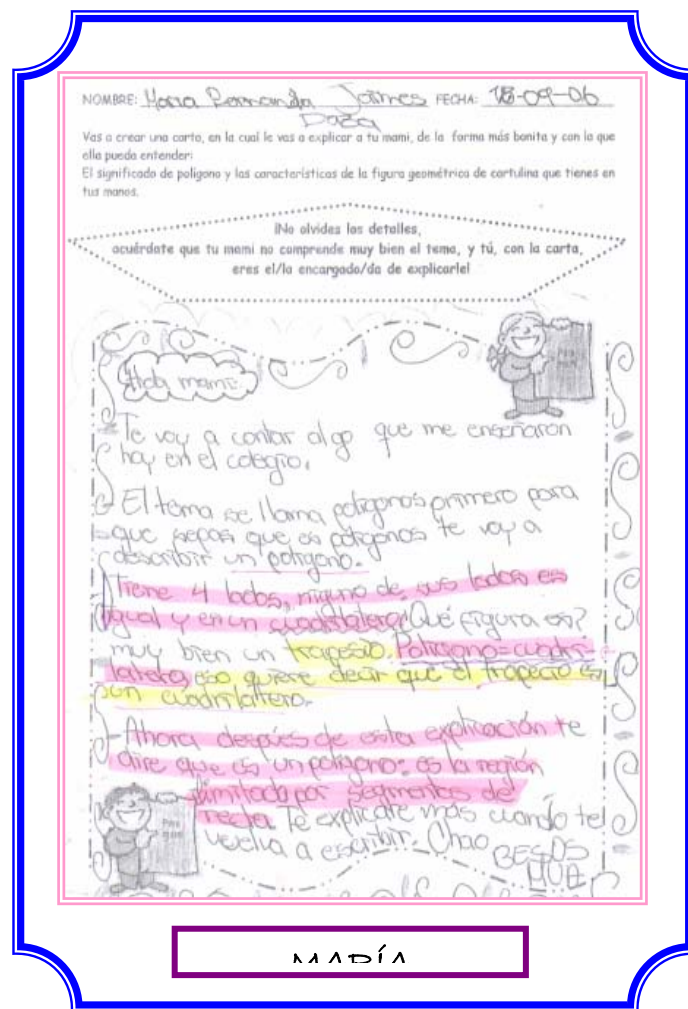 NOMBRE: Maria Fernanda Jaimes FECHA: 18-09-06
Daza
Vas a crear una carta, en la cual le vas a explicar a tu mami, de la forma más bonita y con la que
ella pueda entender:
El significado de polígono y las características de la figura geométrica de cartulina que tienes en
tus manos.
¡No olvides los detalles,
acuérdate que tu mami no comprende muy bien el tema, y tú, con la carta,
eres el/la encargado/da de explicarle!
Hola mami:
Te voy a contar algo que me enseñaron
hay en el colegio.
El tema se llama poligonos primero para
que sepas que es poligonos te voy a
describir un poligono.
Tiene 4 lados, niguno de sus lados es
igual y en un cuadrilatero ¿Qué figura es?
muy bien un trapesio. Poligono=cuadri-
latero, eso quiere decir que el trapecio es
un cuadrilatero.
Ahora despúes de esta explicación te
dire que es un poligono: es la región
limitada por segmentos de
recta. Te explicare mas cuando te
vuelva a escribir. Chao
BESOS
MUA
MARÍA